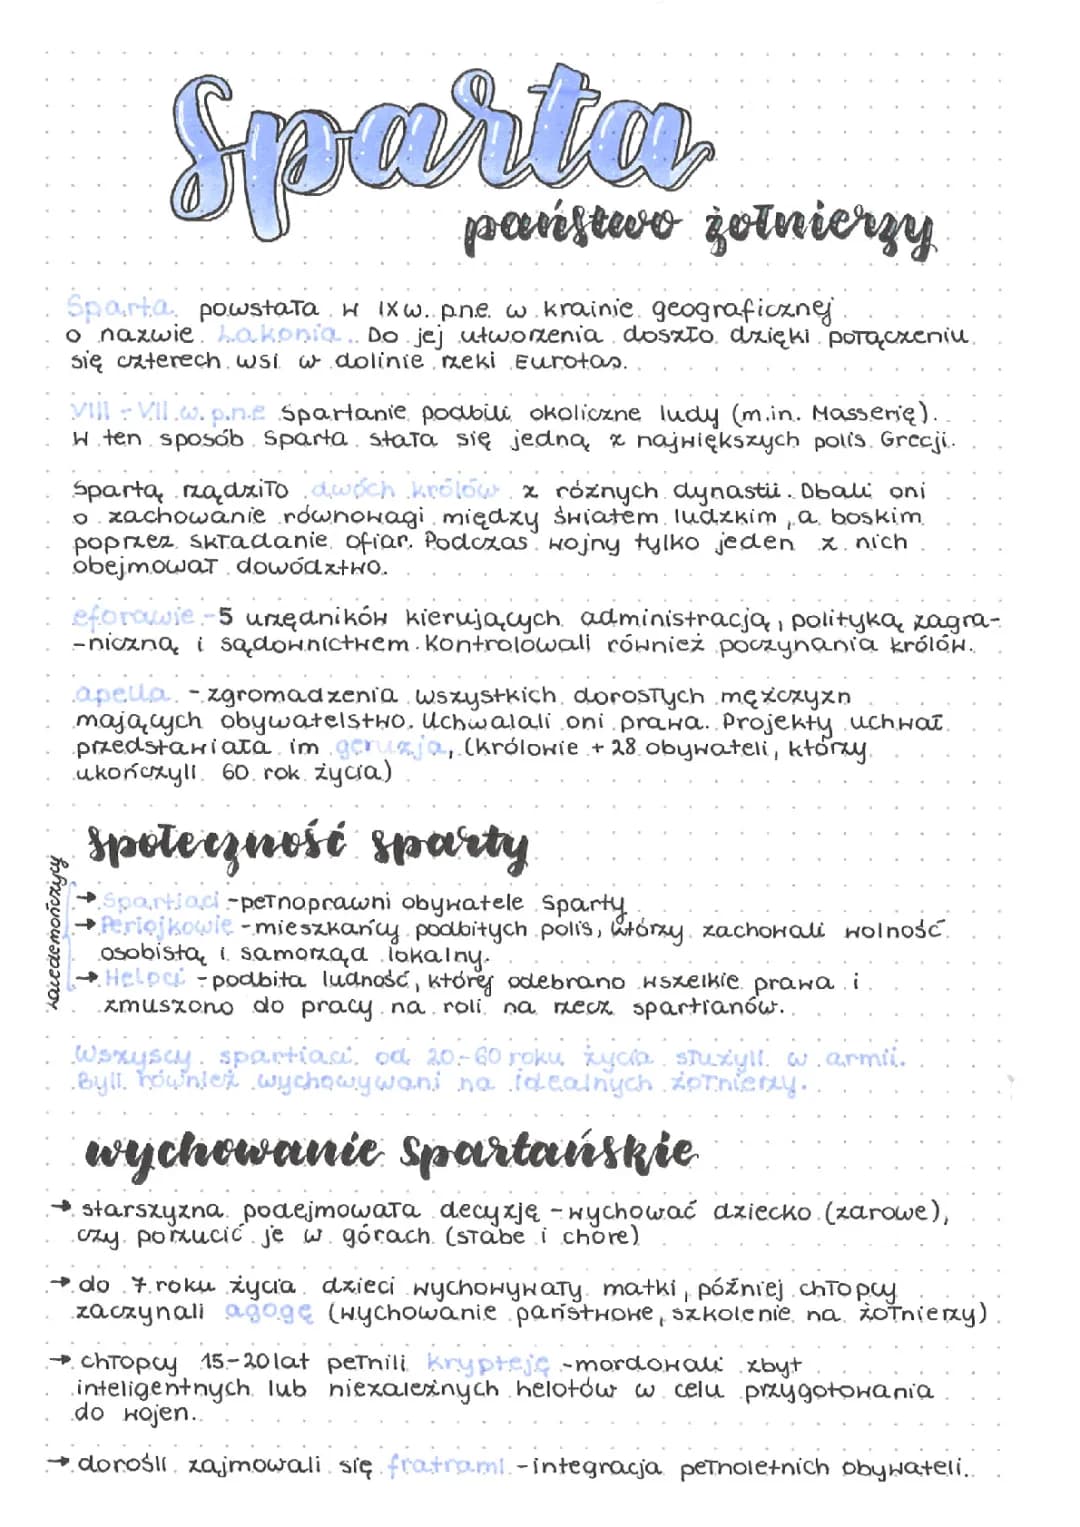 Sparta
państwo żołnierzy
Sparta powstała w IX w. p.n.e. w krainie geograficznej
o nazwie Lakonia. Do jej utworzenia doszło dzięki połączeniu
się czterech wsi w dolinie rzeki Eurotas.
VIII - VII w. p.n.e Spartanie podbili okoliczne ludy (m.in. Massenię).
W ten sposób Sparta stała się jedną z największych polis Grecji.
Spartą rządziło dwóch królów z różnych dynastii. Dbali oni
o zachowanie równowagi między światem ludzkim, a boskim
poprzez składanie ofiar. Podczas wojny tylko jeden z nich
obejmował dowództwo.
eforawie - 5 urzędników kierujących administracją, polityką zagra-
-niczną i sądownictwem. Kontrolowali również poczynania królów.
apella - zgromadzenia wszystkich dorosłych mężczyzn
mających obywatelstwo. Uchwalali oni prawa. Projekty uchwał
przedstawiała im geruzja, (królowie + 28 obywateli, którzy
ukończyli 60 rok życia)
Społeczność sparty
Lacedemończycy
→ Spartiaci - pełnoprawni obywatele Sparty
→ Periojkowie - mieszkańcy podbitych polis, którzy zachowali wolność
osobistą i samorząd lokalny.
→ Heloci - podbita ludność, której odebrano wszelkie prawa i
zmuszono do pracy na roli na rzecz spartianów.
Wszyscy spartiaci od 20-60 roku życia służyli w armii.
Byli również wychowywani na idealnych żołnierzy.
wychowanie Spartańskie
→ starszyzna podejmowała decyzję - wychować dziecko (zdrowe),
czy porzucić je w górach (słabe i chore)
→ do 7 roku życia dzieci wychowywały matki, później chłopcy
zaczynali agogę (wychowanie państwowe, szkolenie na żołnierzy)
→ chłopcy 15-20 lat pełnili krypteję - mordowali zbyt
inteligentnych lub niezależnych helotów w celu przygotowania
do wojen.
→ dorośli zajmowali się fratrami - integracja pełnoletnich obywateli.